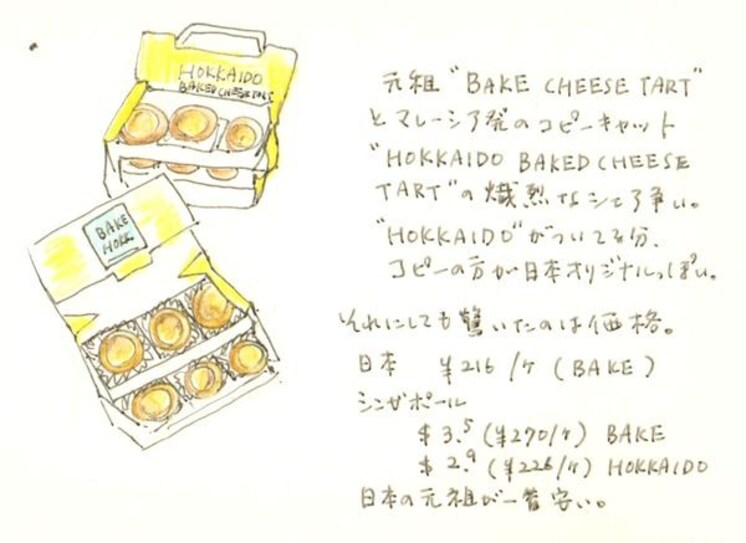 HOKKAIDO
BAKED CHEESE TART
BAKE
HOKK.
元祖 "BAKE CHEESE TART"
とマレーシア発のコピーキャット
"HOKKAIDO BAKED CHEESE
TART"の熾烈なシェア争い。
"HOKKAIDO"がついてる分、
コピーの方が日本オリジナルっぽい。
それにしても驚いたのは価格。
日本 ¥216/ヶ (BAKE)
シンガポール
$3.5 (¥270/ヶ) BAKE
$2.9 (¥226/ヶ) HOKKAIDO
日本の元祖が一番安い。